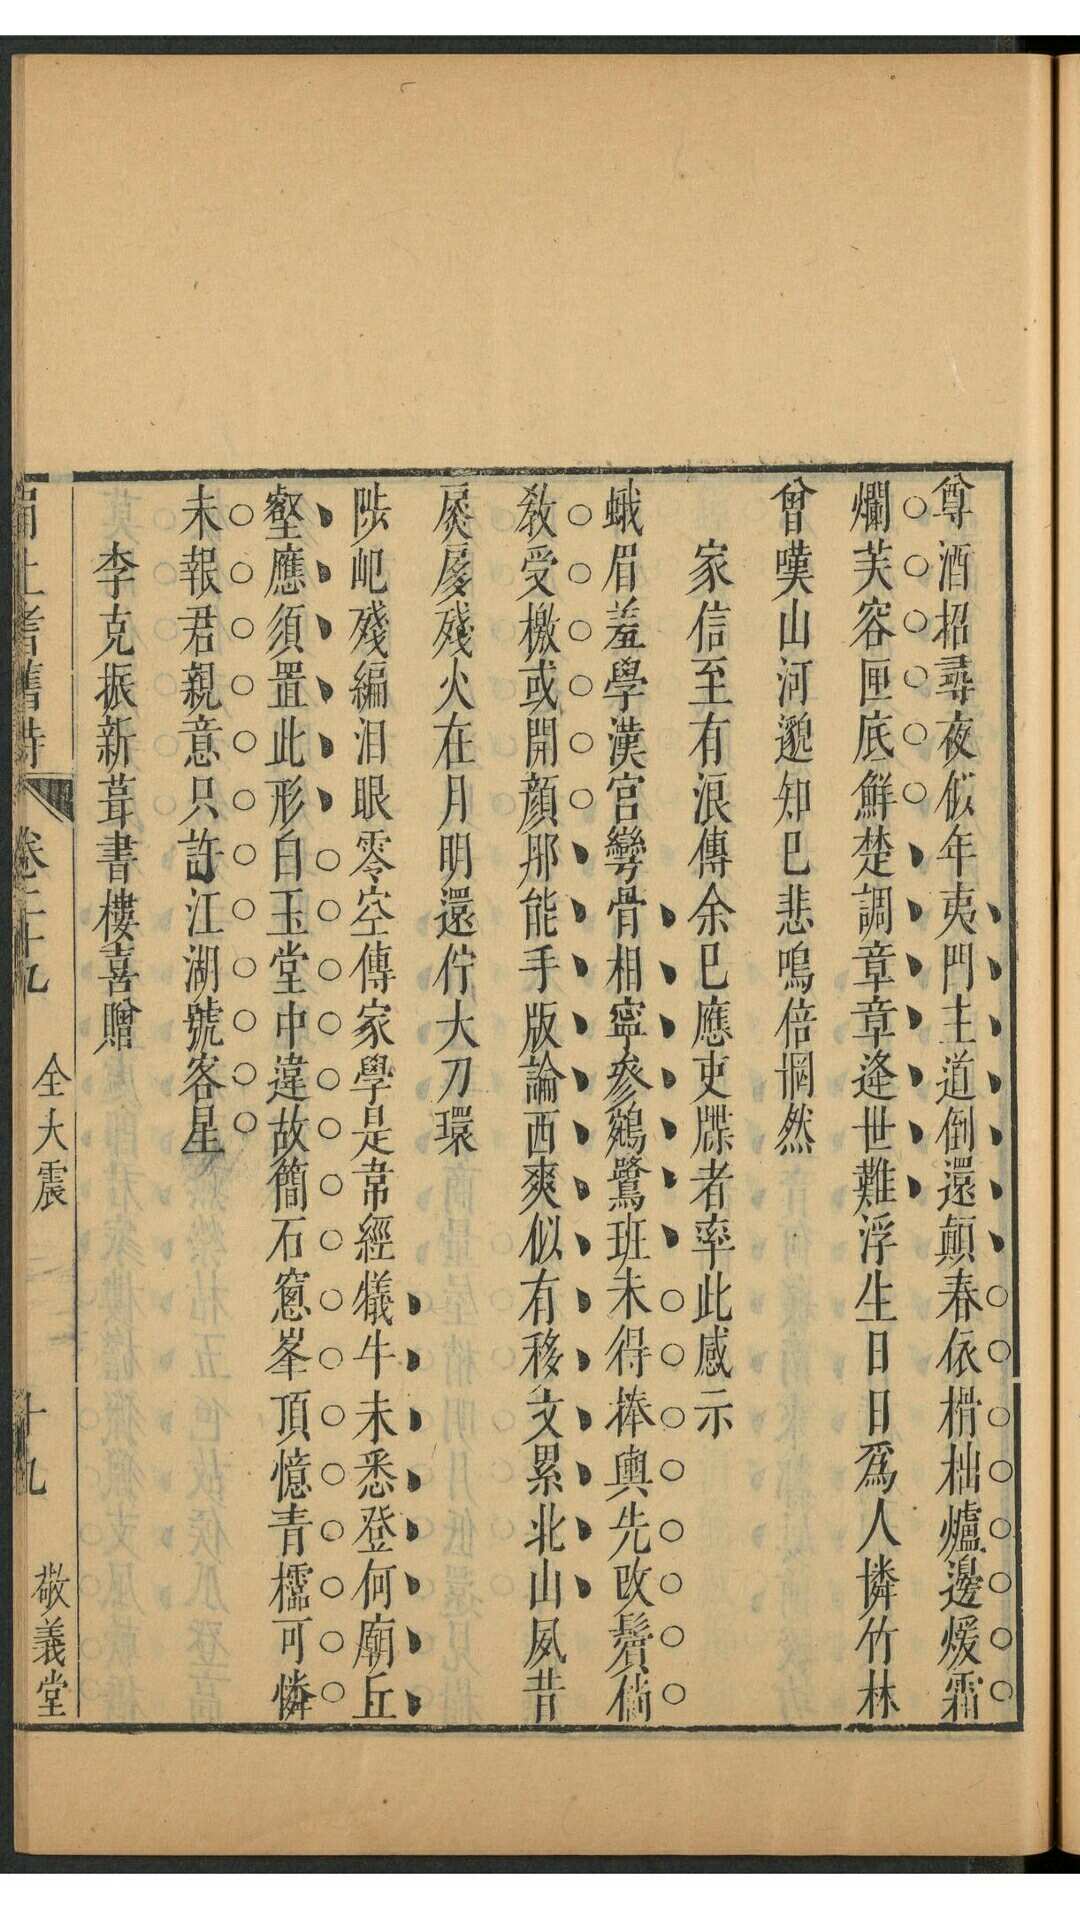 尊酒招尋夜似年夷門主道倒還顛春依榾柮爐邊煖霜
爛芙容匣底鮮楚調章章逄世難浮生日日爲人憐竹林
曾嘆山河邈知巳悲鳴倍惘然
家信至有浪傳余巳應吏牒者率此感示
蛾眉羞學漢宮彎骨相寧參鵷鷺班未得捧輿先改鬢倘
敎受檄或開顏那能手版論西爽似有移文累北山夙昔
扊扅殘火在月明還佇大刀環
陟屺殘編泪眼零空傳家學是韋經犧牛未悉登何廟丘
壑應須置此形白玉堂中違故簡石窻峯頂憶青櫺可憐
未報君親意只許江湖號客星
李克振新葺書樓喜贈
上耆舊詩 卷二十九 全大震 十九 敬義堂